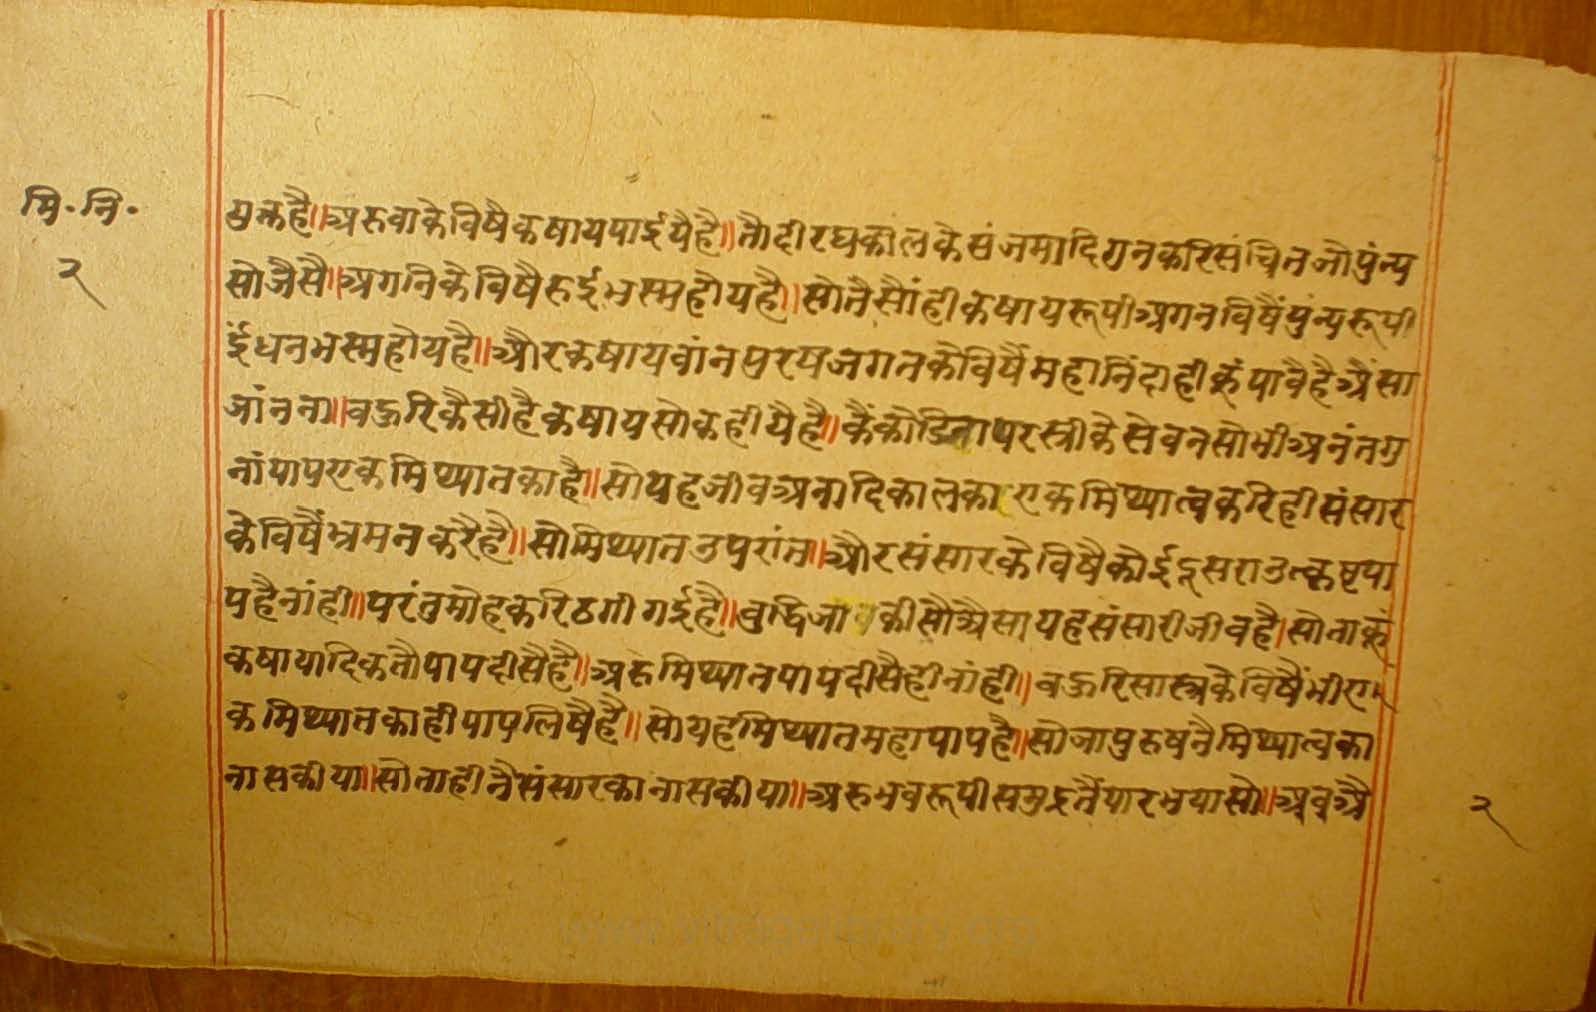 मि·नि·
२
युक्तहै॥अरुवाकेविषैकषायपाईयैहै॥तौदीरघकालकेसंजमादिगुनकरिसंचितजोपुंन्य
सोजैसै॥अगनिकेविषैरुईभस्महोयहै॥सोतैसौंहीकषायरूपीअगनविषैंपुंन्यरूपी
ईंधनभस्महोयहै॥औरकषायवांनपुरषजगतकेविषैंमहानिंदाहीकूंपावैहैअैंसा
जांनना॥वऊरिकैसीहैकषायसोकहीयैहै॥कैंकोडिपरस्त्रीकेसेवनसोभीअनंतगु
नांपापएकमिथ्यातकाहै॥सोयहजीवअनादिकालकाएकमिथ्यात्वकरिहीसंसार
केविषैंभ्रमनकरैहै॥सोमिथ्यातउपरांत॥औरसंसारकेविषैकोईदूसराउत्कृष्टपा
पहैनांही॥परंतुमोहकरिठगीगईहै॥वुद्धिजीवकीसौअैसायहसंसारीजीवहै।सोताकूं
कषायादिकतौपापदीसैहै॥अरुमिथ्यातपापदीसैहीनांही॥वऊरिसास्त्रकेविषैंभीए
कमिथ्यातकाहीपापलिषैहै॥सोयहमिथ्यातमहापापहै॥सोजापुरुषनैमिथ्यात्वका
नासकीया॥सोताहीनैसंसारकानासकीया॥अरुभवरूपीसमुद्रतैंपारभयासो॥अवअै
२